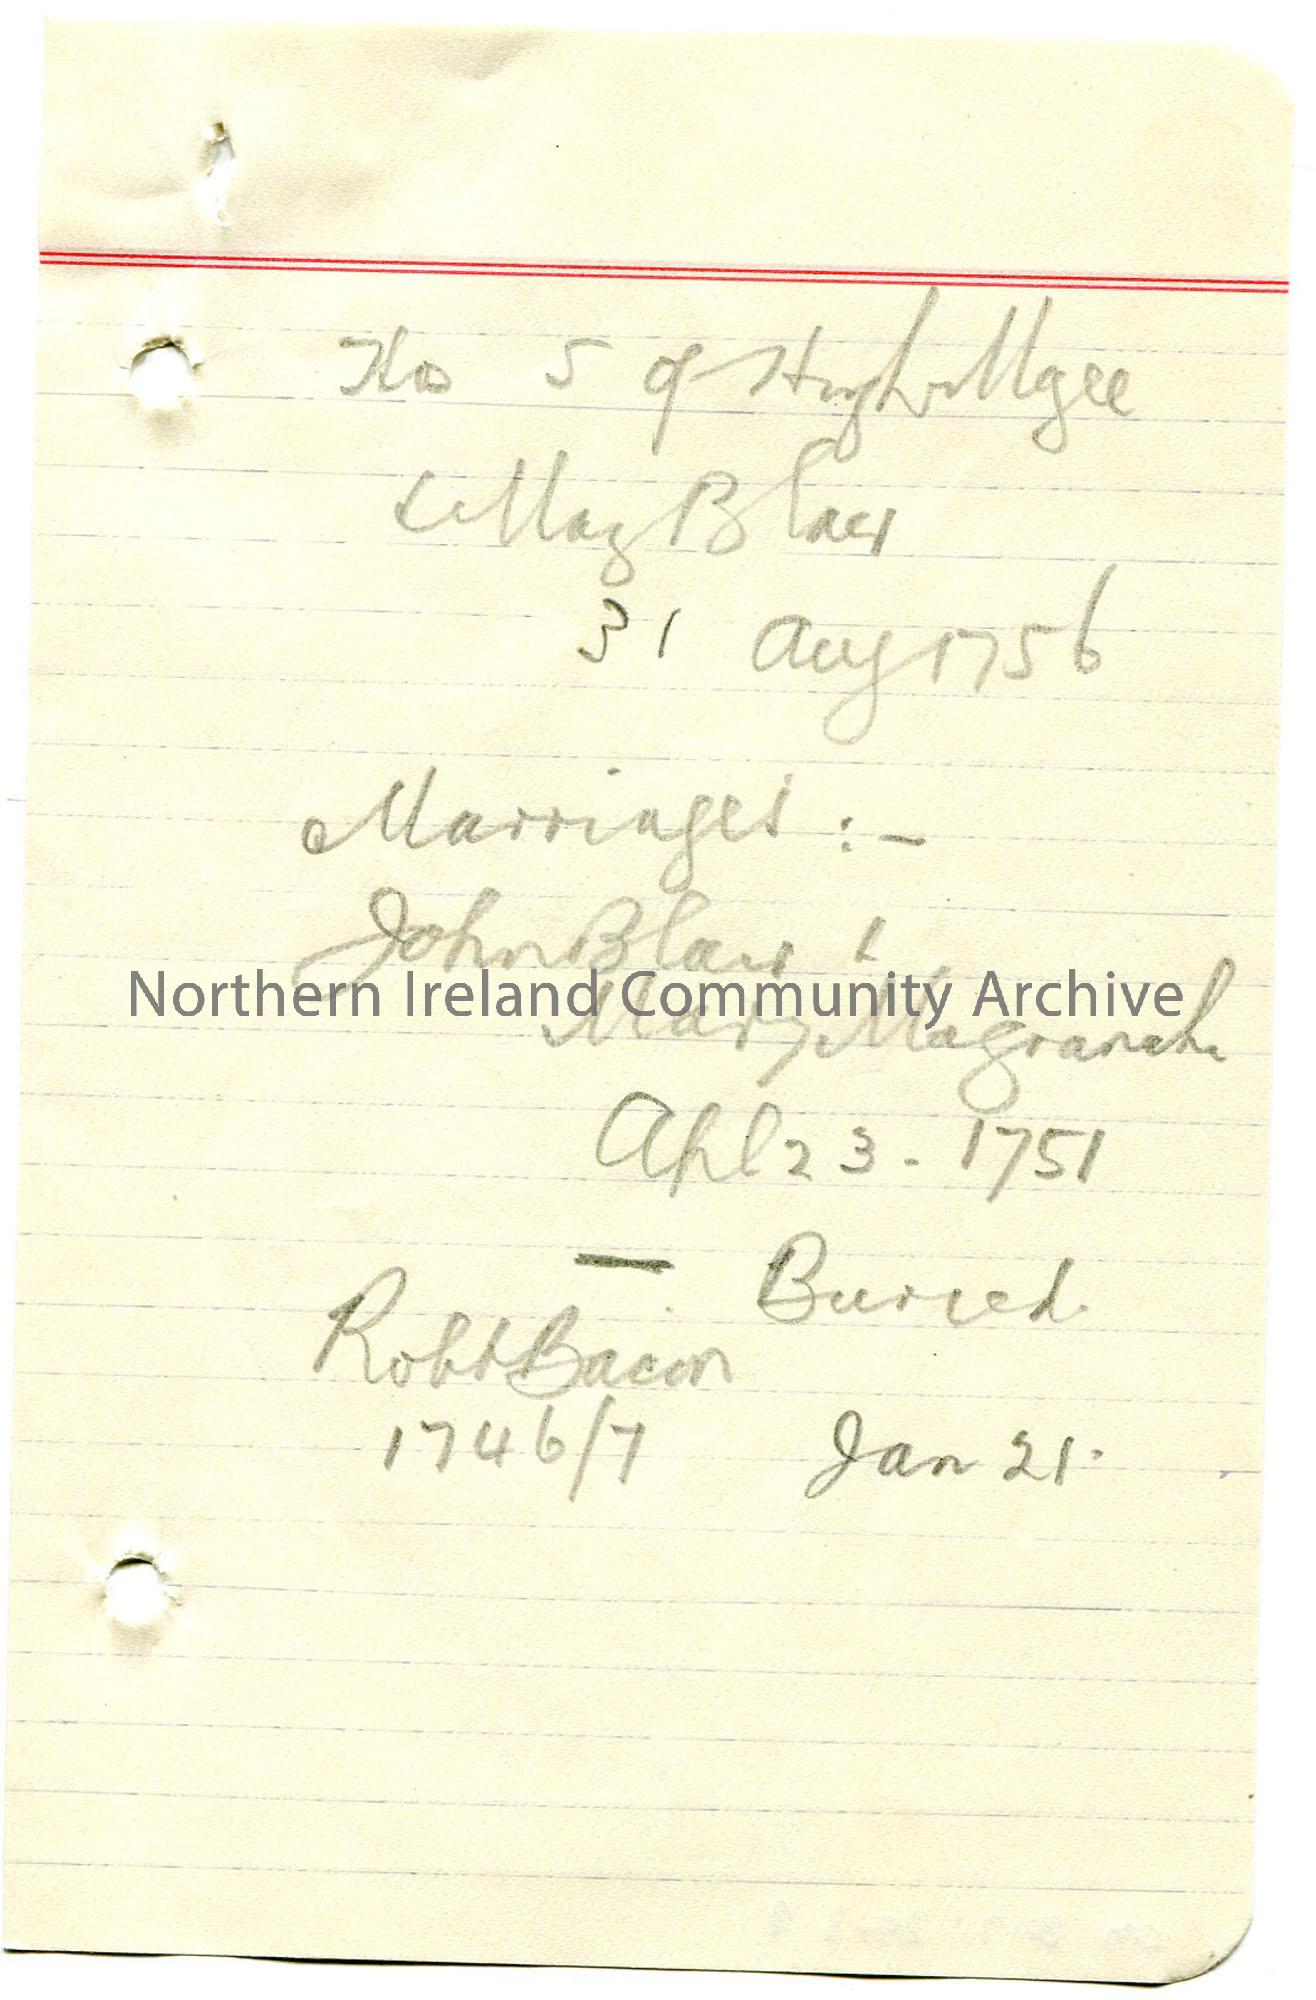 Tho S of Hugh Mgee
& Mary Blair
31 Aug 1756
Marriages :-
John Blair &
Mary Magranahe
Apl 23. 1751
— Buried
Robt Bacon
1746/7 Jan 21.
Northern Ireland Community Archive